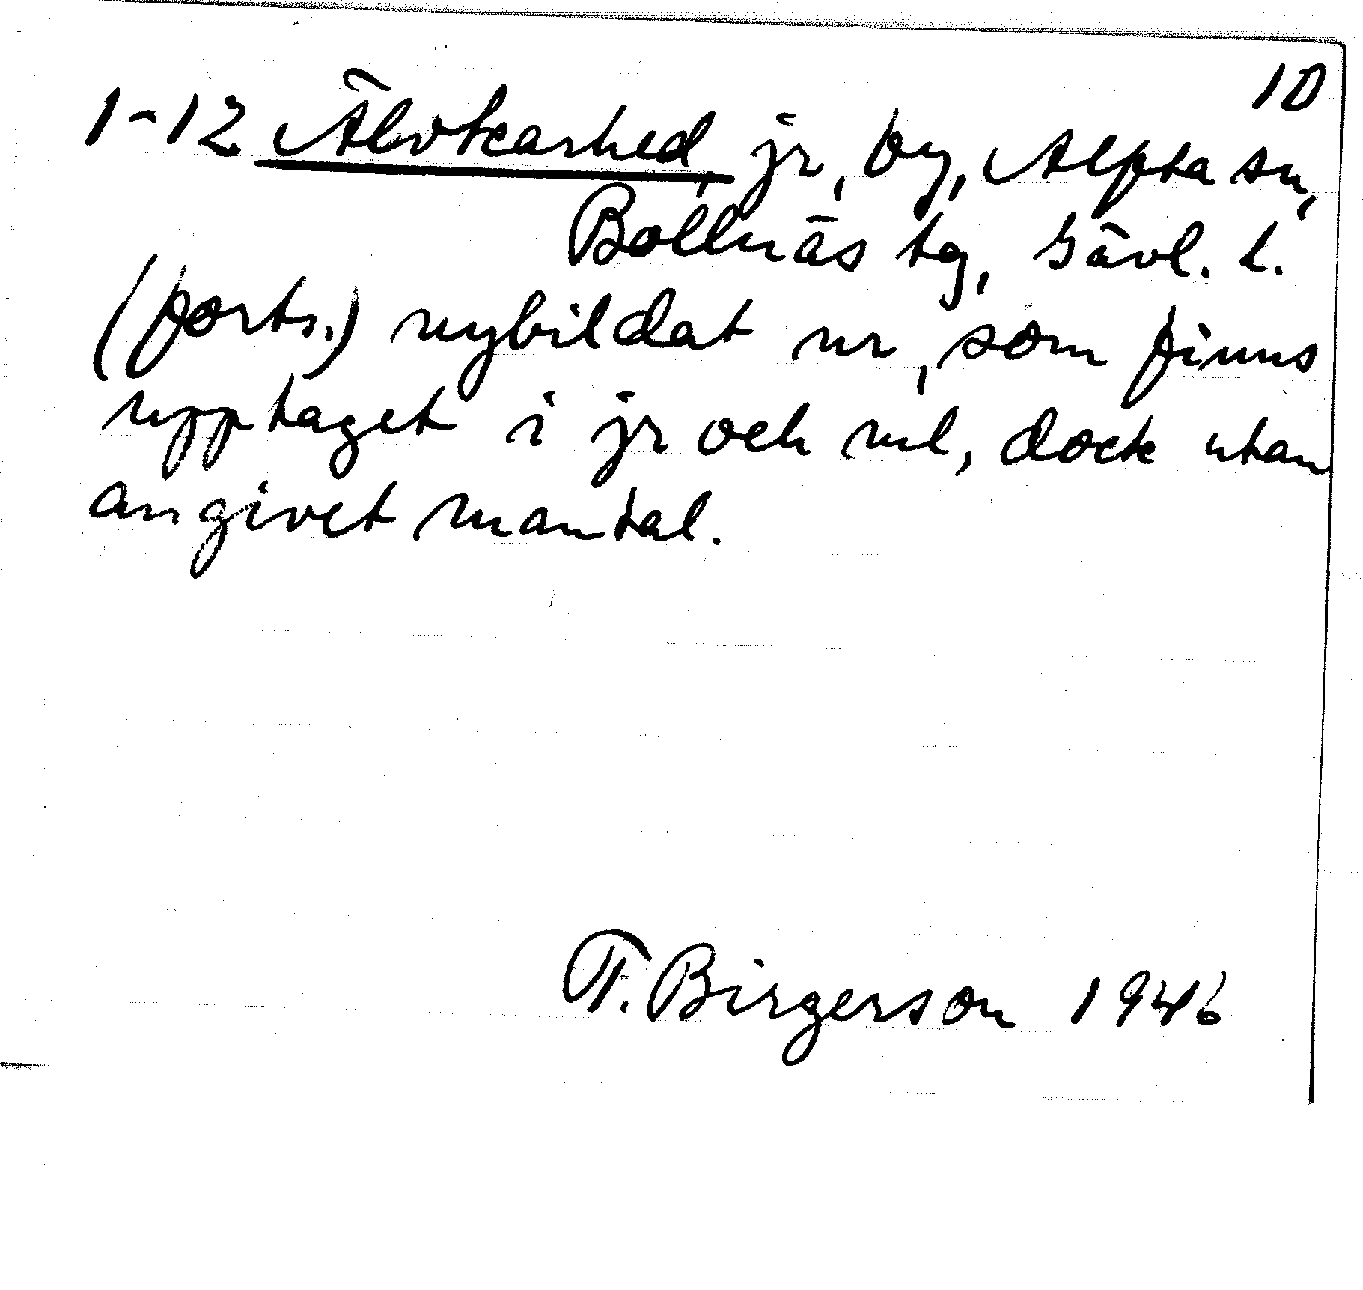 10
1-12 Älvkarhed, jr, by, Alfta sn,
Bollnäs tg, Gävl. l.
(forts.) nybildat nr, som finns
upptaget i jr och ml, dock utan
angivet mantal.
F. Birgerson 1946